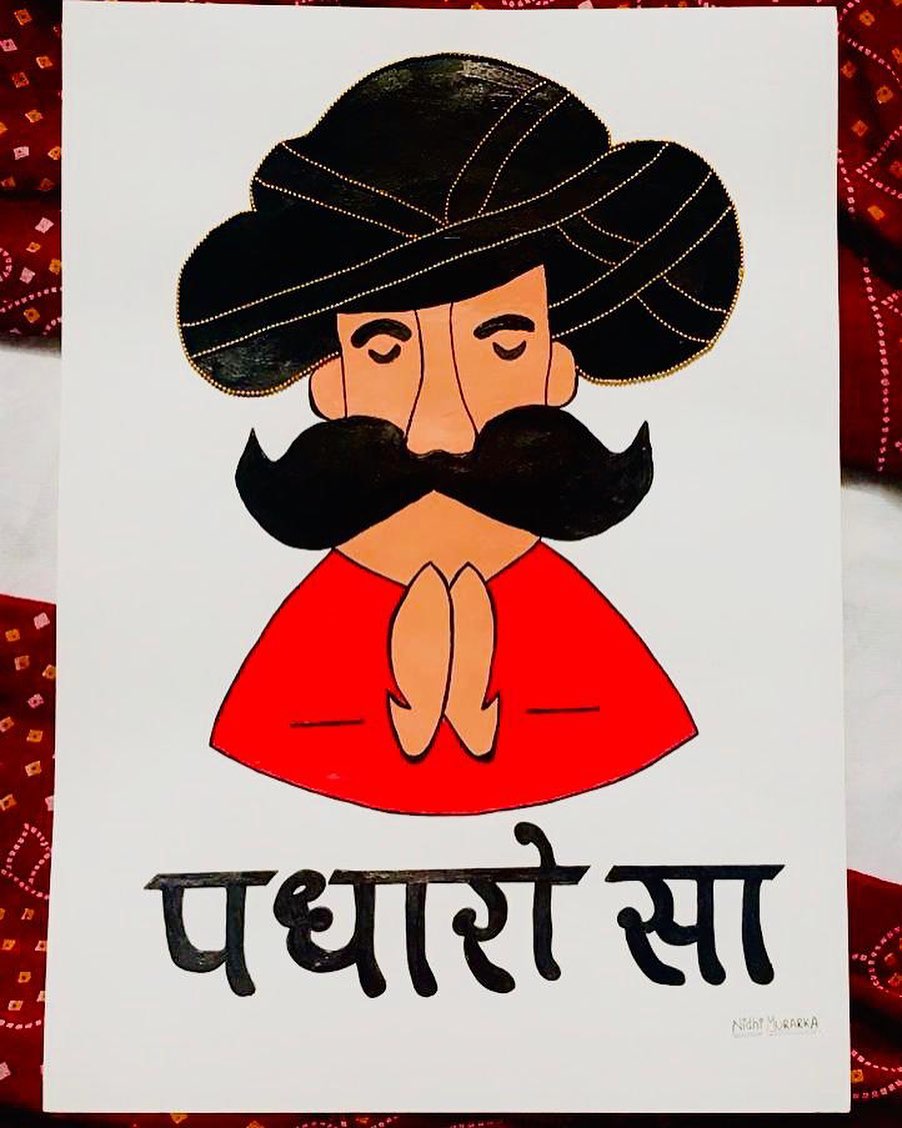 पधारो सा
Nidhi MURARKA